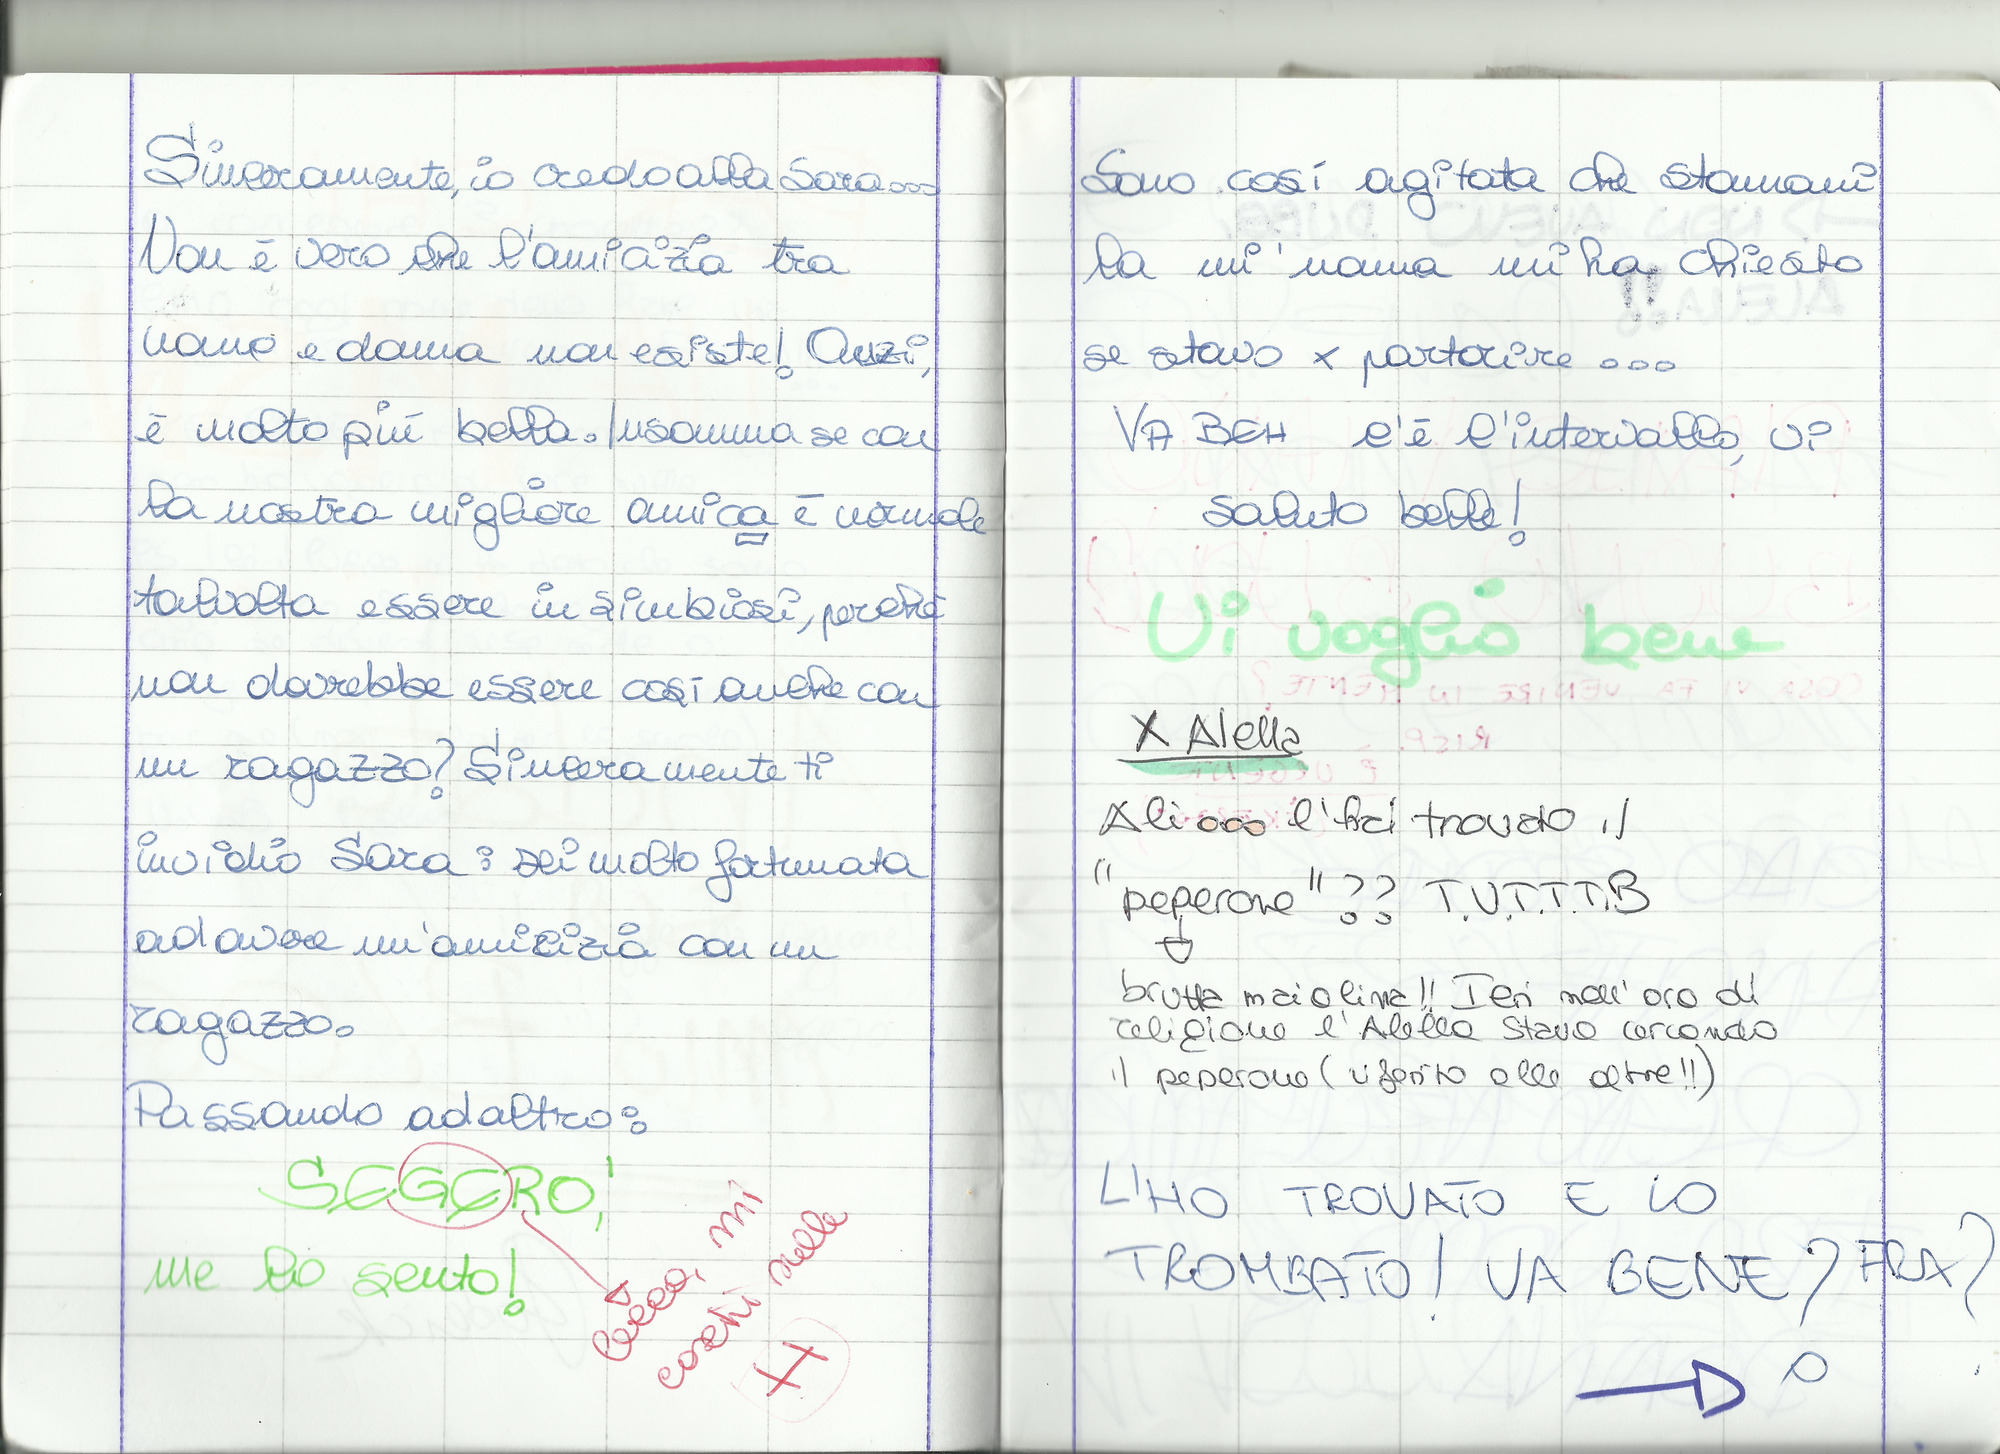 Sinceramente, io credo alla Sara...
Non è vero che l'amicizia tra
uomo e donna non esiste! Anzi,
è molto più bella. Insomma se con
la nostra migliore amica è normale
talvolta essere in simbiosi, perché
non dovrebbe essere così anche con
un ragazzo? Sinceramente ti
invidio Sara: sei molto fortunata
ad avere un'amicizia con un
ragazzo.
Passando ad altro:
SEGERO',
me lo sento!
mi
nelle
H
Sono così agitata che stamani
la mi' nonna mi ha chiesto
se stavo x partorire ...
VA BEH c'è l'intervallo, vi
saluto belle!
Vi voglio bene
X Alella
Ali ooo l'hai trovato il
"peperone"?? T.V.T.T.T.B
brutta maiolina!! Ieri nell'ora di
religione l'Alella stava cercando
il peperone (riferito alle altre!!)
L'HO TROVATO E LO
TROMBATO! VA BENE? FRA?